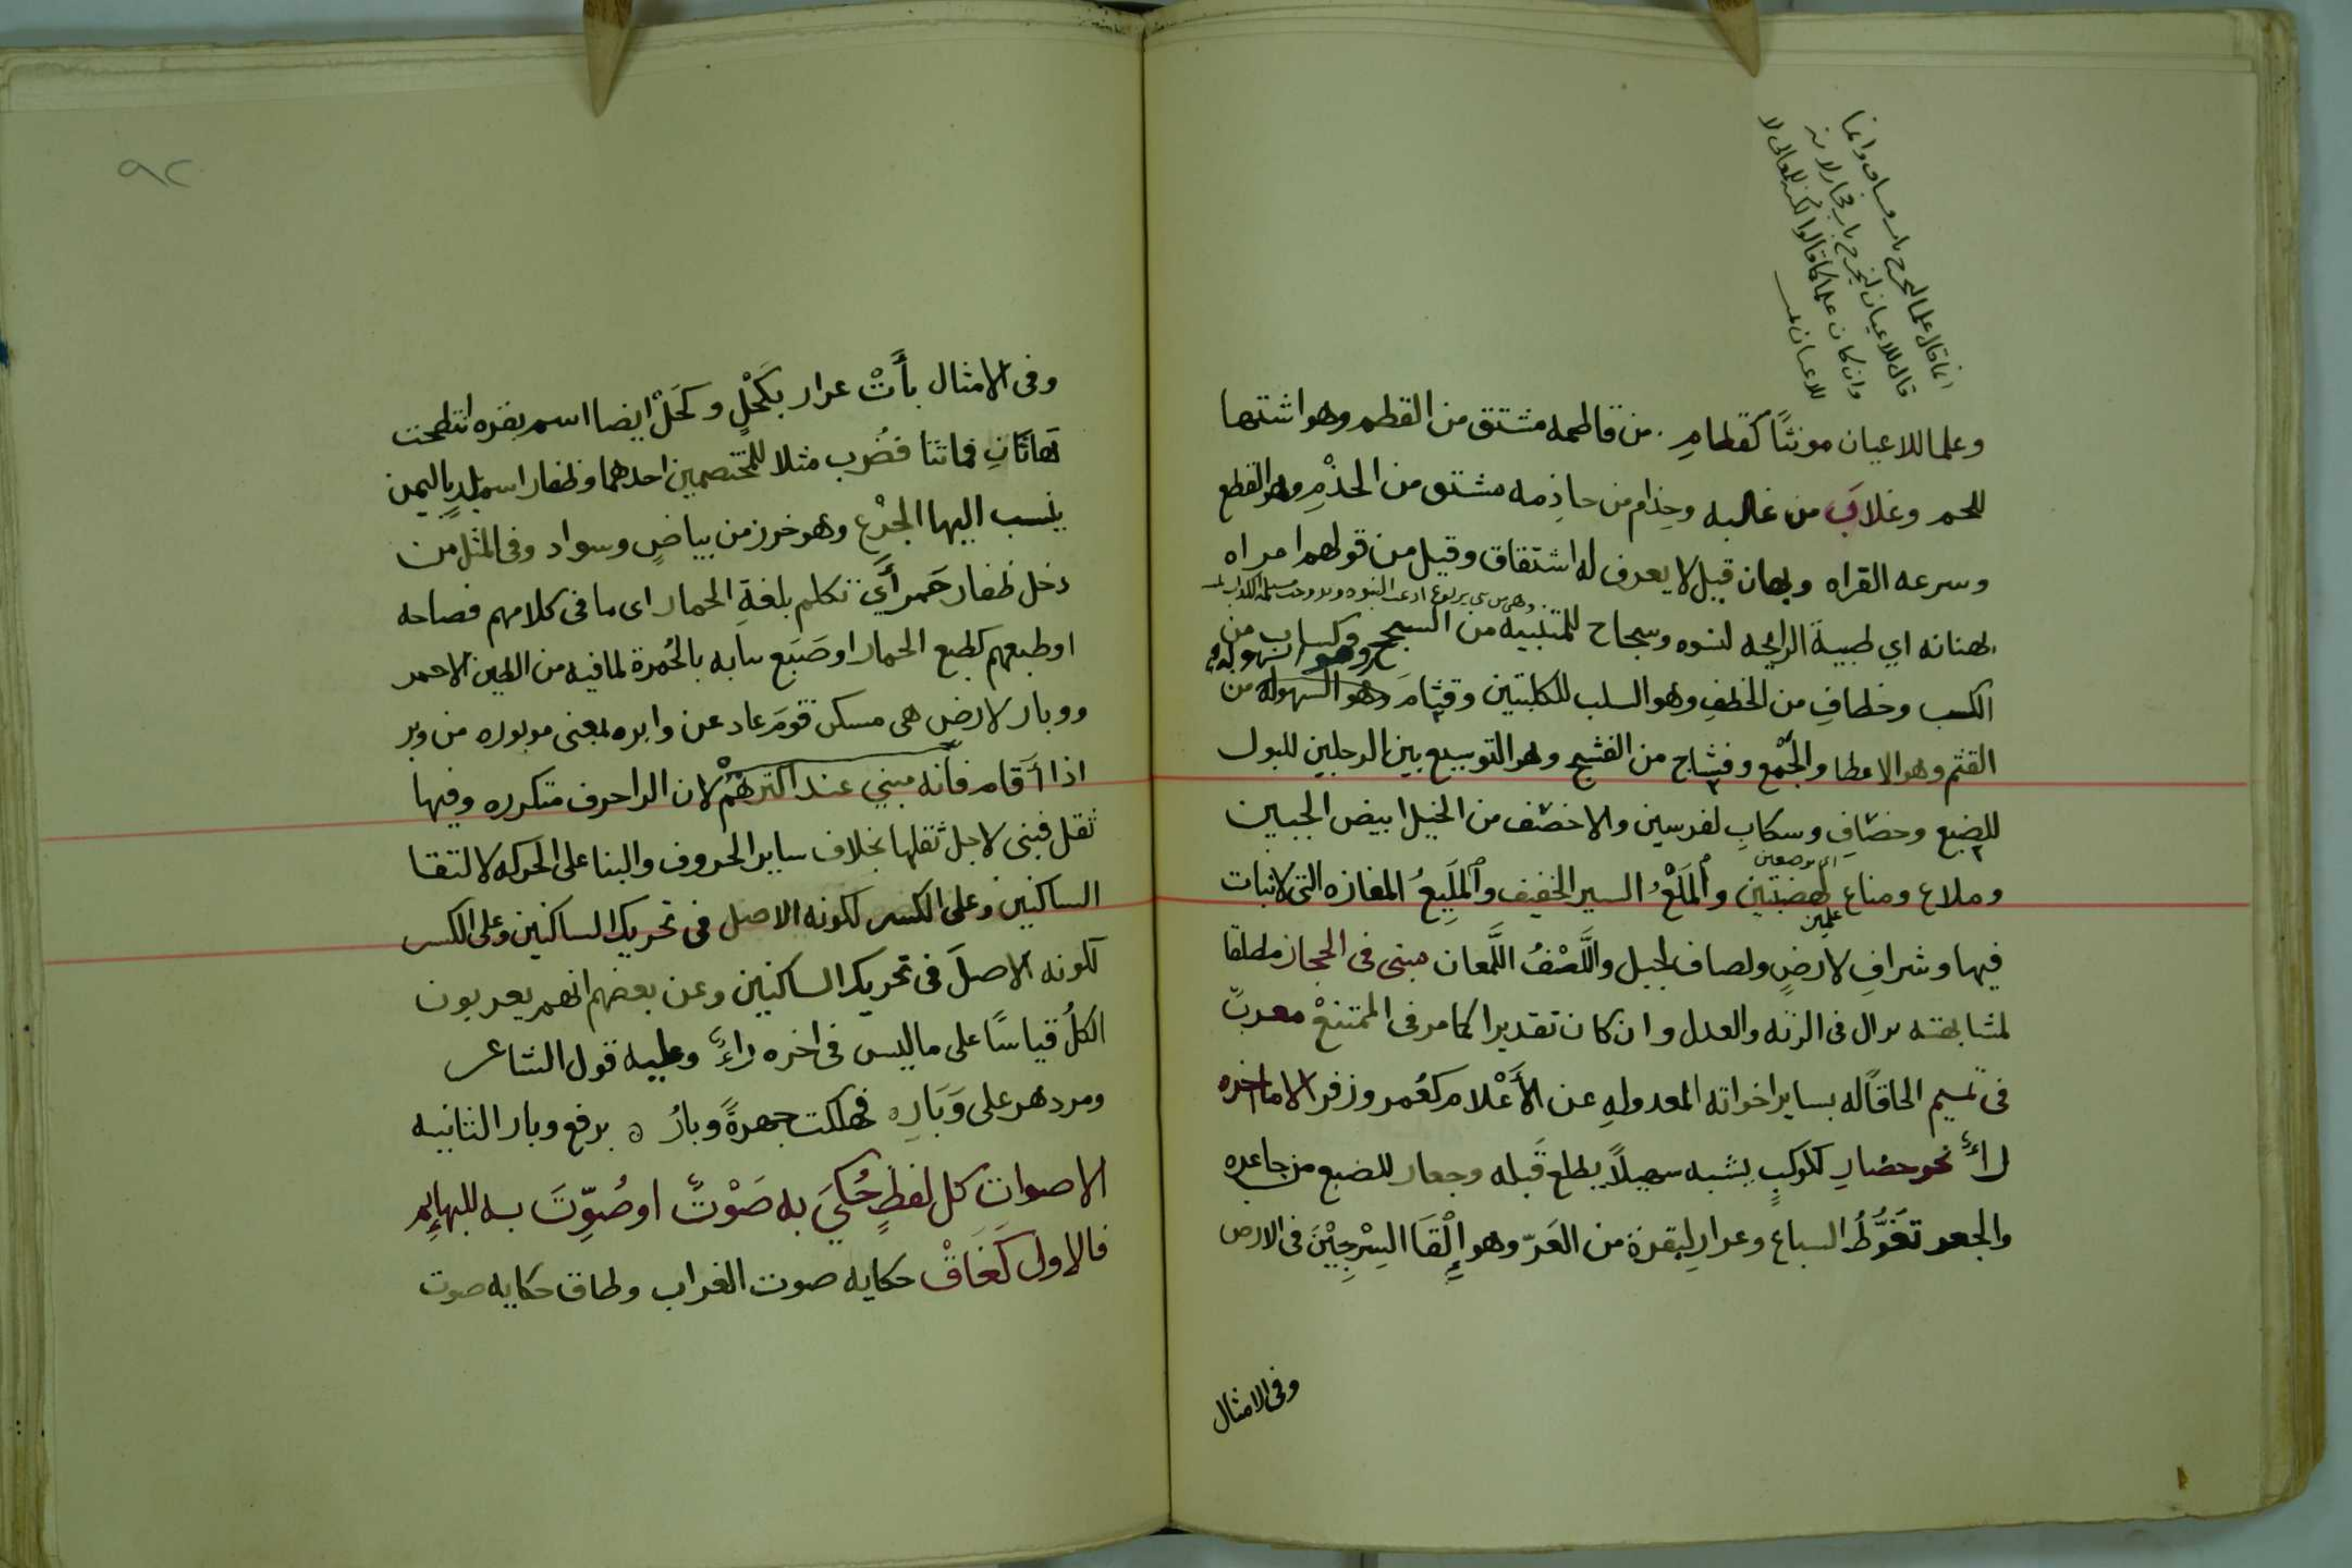 انما قال علما ليخرج باب فساق وانما
قال للاعيان ليخرج باب فجار لانه
وان كان علما كما قالوا لكنه للمعاني لا
للاعيان
وعلما للاعيان مونثًا كقطامِ من قاطمه مشتق من القطم وهو اشتها
للحم وغلابَ من غالبه وحِذام من حاذِمه مشتق من الحذْمِ وهو القطع
وسرعه القراه وبهان قيل لا يعرف له اشتقاق وقيل من قولهم امراه
بهنانه اي طيبيةَ الرايحه لنسوه وسجاح للمتنبيه من السجح وكساب من
الكسب وخطافِ من الخطفِ وهو السلب للكلبتين وقثامَ وهو السهوله من
القثم وهو الاعطا والجمْع وفشاح من الفشح وهو التوسيع بين الرجلين للبول
للضبع وخصَافِ وسكابِ لفرسين والاخصَف من الخيل ابيض الجبين
اي موضعين
وملاع ومناع لهضبتين والملَعْ السير الخفيف والمليِعُ المفازه التى لانبات
علمين
فيها وشرافِ لارضٍ ولصاف لجبل واللَّصْفُ اللَّمعان مبنى فى الحجاز مطلقا
لمشابهته نزال فى الزنه والعدل وان كان تقديرا كما مر فى الممتنعْ معربٌ
فى تميم الحاقًا له بساير اخواته المعدولهِ عن الأَعْلام كعُمر وزفر الا ما اخره
راءٌ نحو حضارِ لكوكبٍ يشبه سهيلاً يطلع قَبله وجعار للضبع من جاعره
والجعر تغَوُّطُ السباع وعرارِ لبقرة من العَرّ وهو إِلْقَا السِرْجِيْنَ فى الارض
وفى الامثال
٩٢
وفى الامثال بأَتْ عرار بكَحْلٍ وكَحَلْ ايضا اسم بقره انتطحت
تهاتَانِ فماتتا فضُرب مثلا للمختصمين احدهما وظفار اسم بلدٍ باليمن
ينسب اليها الجزْع وهو خرز من بياضٍ وسواد وفى المثل من
دخل ظفار حَمر أَيّ تكلم بلغةِ الحمار اى ما فى كلامهم فصاحه
او طبعهم كطبع الحمار او صَبَع ثيابه بالحُمرة لما فيه من الطين الاحمر
ووبار لارض هى مسكن قوم عاد عن وابره بمعنى موبوره من وبر
اذا أَقام فانه مبني عند اكثرهمْ لان الرا حرف متكرره وفيها
ثقل فبنى لاجل ثقلها بخلاف ساير الحروف والبنا على الحركه لالتقا
الساكنين وعلى الكسر لكونه الاصل فى تحريك الساكنين وعلى الكسر
لكونه الاصلَ فى تحريك الساكنين وعن بعضهم انهم يعربون
الكلُ قياسًا على ما ليس فى اخره راءٌ وعليه قول الشاعر
ومر دهر على وَبَارِ ه فهلكت جهرةً وبارُ ه برفع وبار الثانيه
الاصوات كل لفظٍ حُكيَ به صَوْتٌ او صُوِّتَ به للبهايم
فالاول كَغَاقْ حكايه صوت الغراب وطاق حكايه صوت